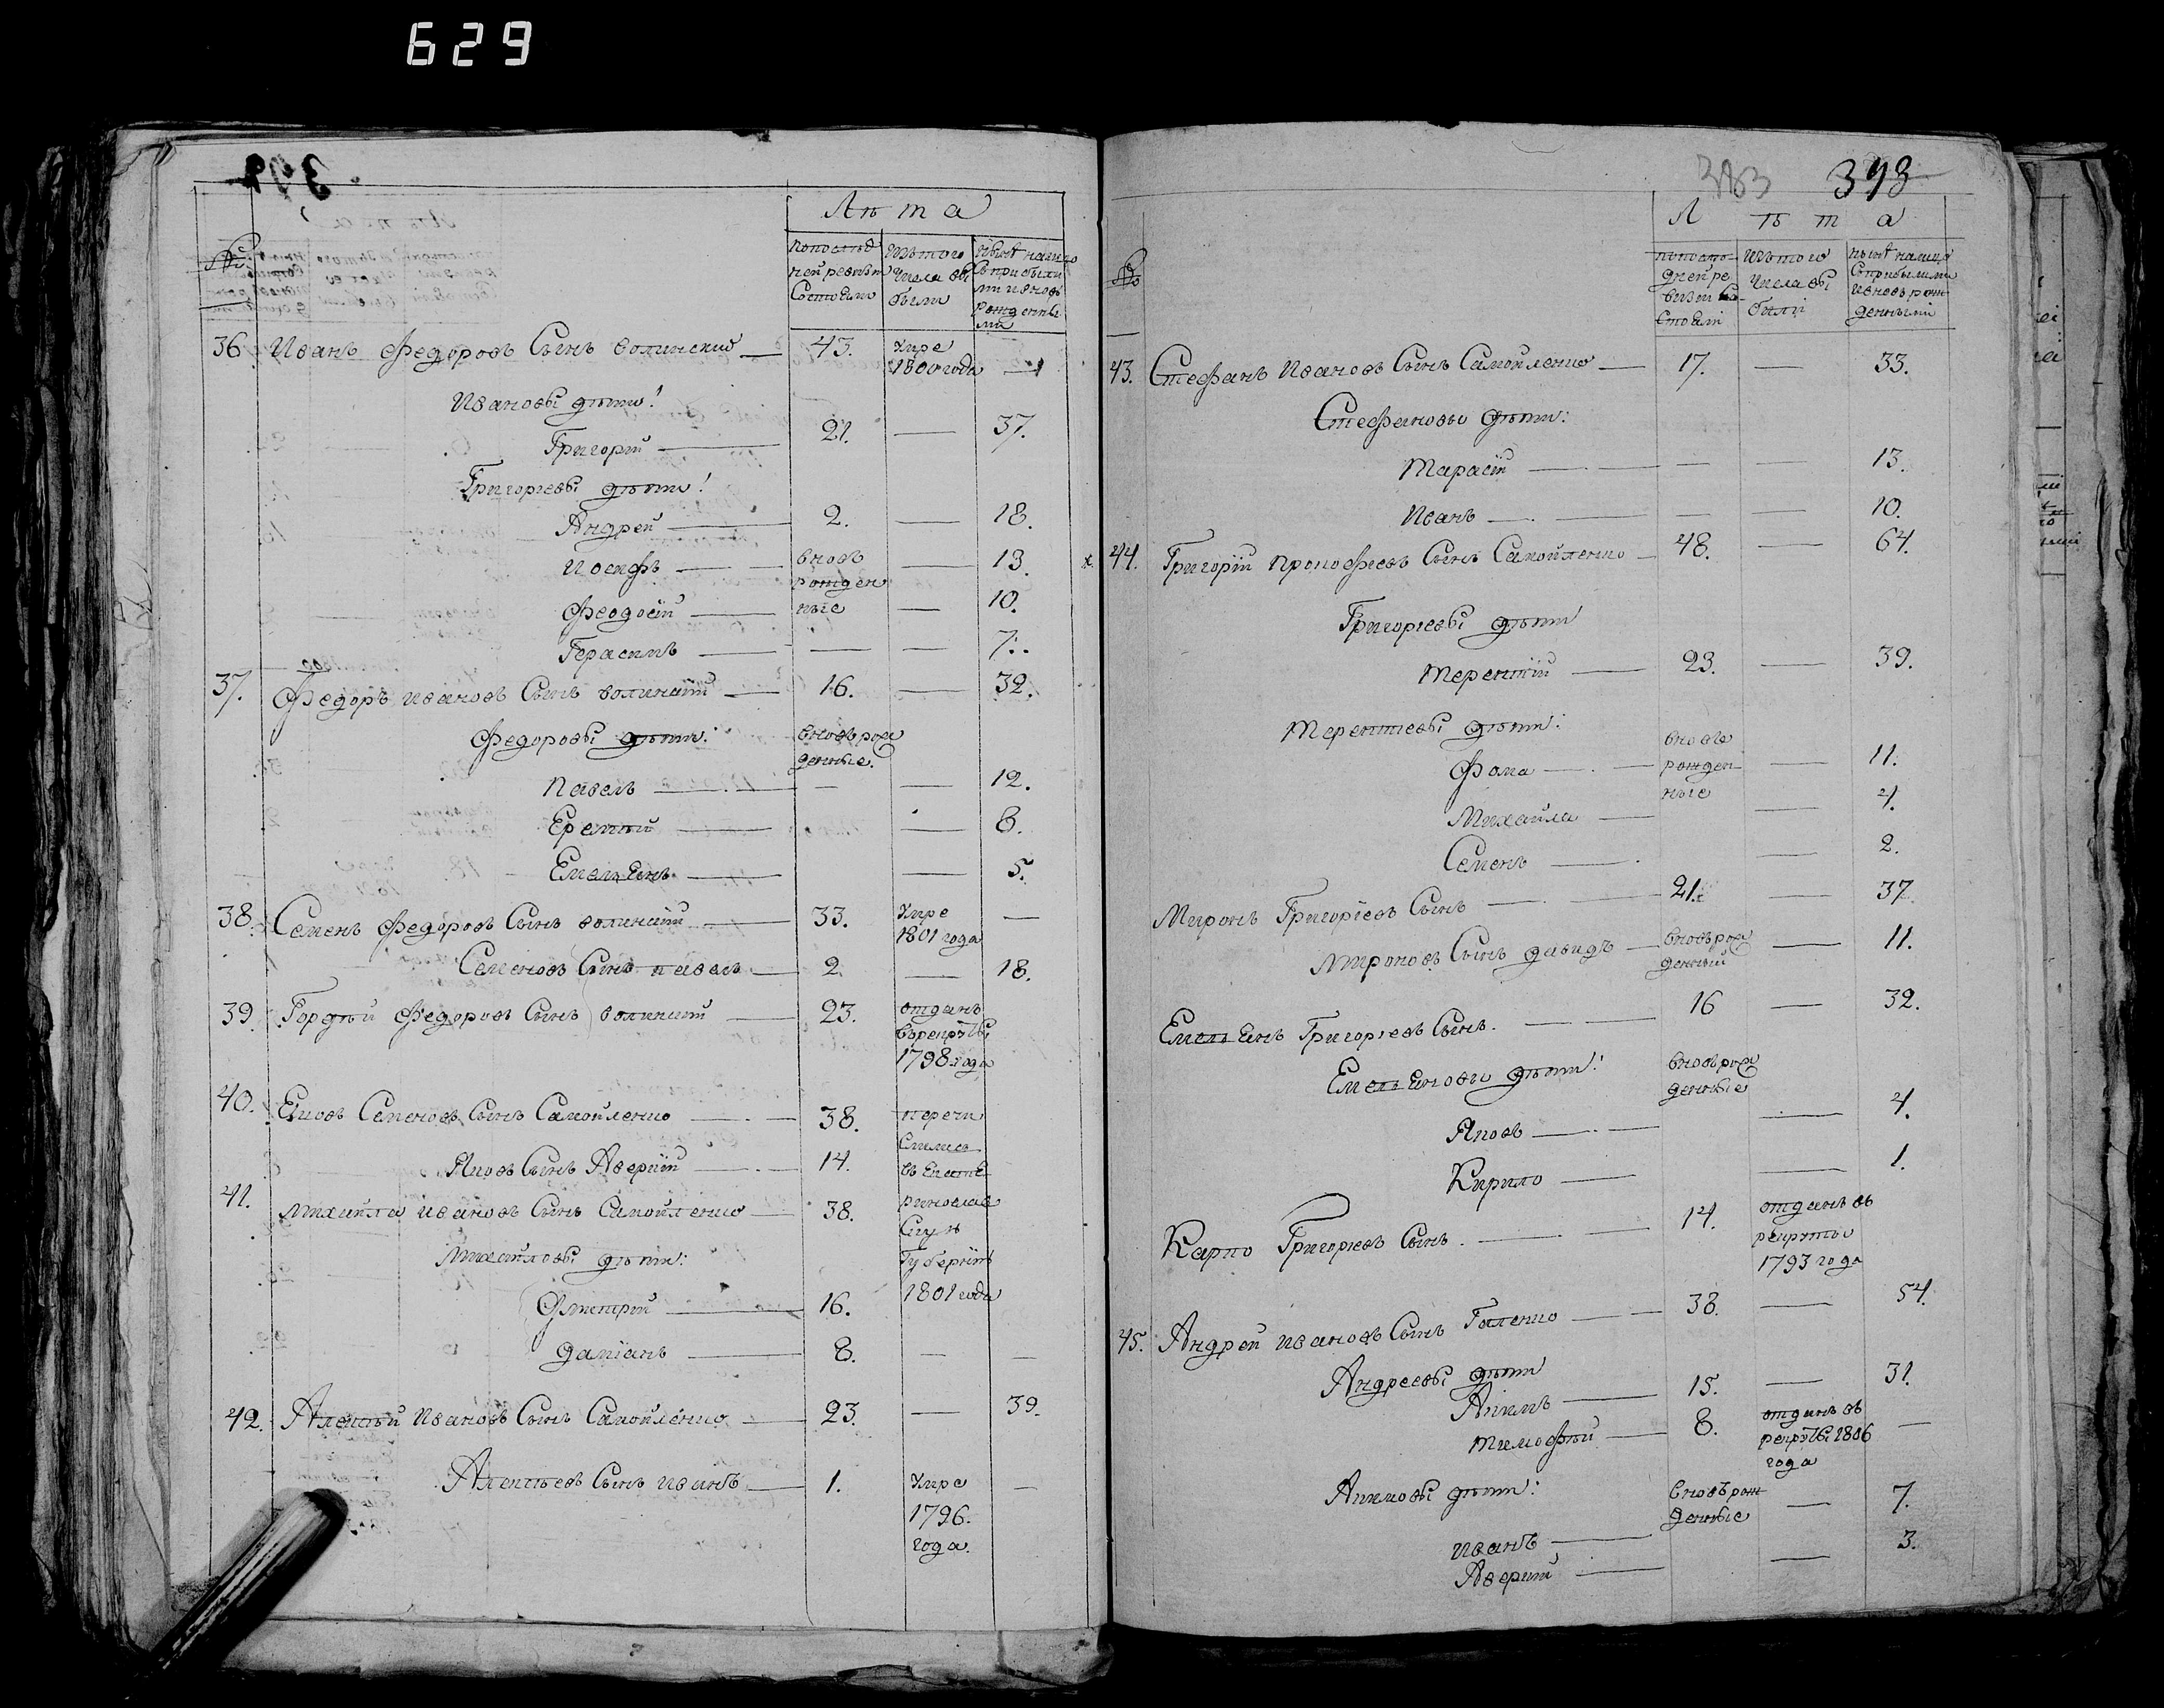 629
Лѣта
№
по послѣд
ней ревизіи
состояло
изъ того
числа вы
было
нынѣ на лицо
съ прибылы
ми и вновь
рожденны
ми
36 Иванъ Федоровъ Сынъ Волинскій — 43. умре 1800 года —
Ивановы дѣти:
Григорій — 21. — 37.
Григорьевы дѣти:
Андрей — 2. — 18.
Иосифъ — вновь — 13.
рожден
Феодосій — ные — 10.
Герасимъ — — — 7.
37. Федоръ Ивановъ Сынъ Волинскій — 16. — 32.
Федоровы дѣти: вновь рож
денные.
Павелъ — — — 12.
Еремѣй — — 8.
Емельянъ — — 5.
38. Семенъ Федоровъ Сынъ Волинскій — 33. умре 1801 года —
Семеновъ Сынъ Павелъ — 2 — 18.
39. Гордѣй Федоровъ Сынъ Волинскій — 23. отданъ
въ рекруты
1798 года
40. Яковъ Семеновъ Сынъ Самойленко — 38. перечи
слились
Яковъ Сынъ Аверкій — 14. въ Екате
41. Михайла Ивановъ Сынъ Самойленко — 38. ринослав
скую
Михайловы дѣти: Губернію
Дмитрій — 16. 1801 года
Даміанъ — 8. — —
42. Алексѣй Ивановъ Сынъ Самойленко — 23. — 39.
Алексѣевъ Сынъ Иванъ — 1. умре —
1796.
года.
383 393
Лѣта
№
по послѣ
дней ре
визіи со
стояли
изъ того
числа вы
были
нынѣ на лицо
съ прибылыми
и вновь рож
денными
43. Стефанъ Ивановъ Сынъ Самойленко — 17. — 33.
Стефановы дѣти:
Тарасій — — — 13.
Иванъ — — — 10.
х. 44. Григорій Прокофіевъ Сынъ Самойленко — 48. — 64.
Григорьевы дѣти
Терентій — 23. — 39.
Терентіевы дѣти: вновь
Фома — рожден — 11.
ные
Михайла — — 4.
Семенъ — — 2.
Миронъ Григоріевъ Сынъ — 21. — 37
Мироновъ Сынъ Давидъ — вновь рож — 11.
денный
Емельянъ Григорьевъ Сынъ. — 16 — 32.
Емельяновы дѣти: вновь рож
денные
Яковъ — — 4.
Кирило — — 1.
Карпо Григорьевъ Сынъ. — 14. отданъ въ
рекруты
1793 года
45. Андрей Ивановъ Сынъ Галенко — 38. — 54.
Андреевы дѣти
Акимъ — 15. — 31.
Тимофѣй — 8. отданъ въ —
рекруты 1806
года
Акимовы дѣти: вновь рож
денные
Иванъ — — 7.
Аверкій — — 3.